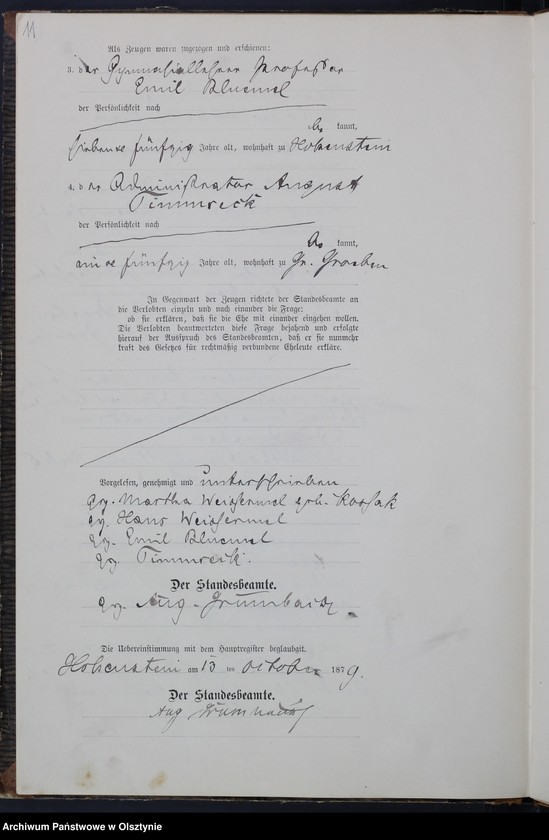 11
Als Zeugen waren zugezogen und erschienen:
3. der Gymnasiallehrer Professor
Emil Bluemel
der Persönlichkeit nach
be kannt,
sieben u fünfzig Jahre alt, wohnhaft zu Hohenstein
4. der Administrator August
Timmreck
der Persönlichkeit nach
be kannt,
ein u fünfzig Jahre alt, wohnhaft zu Gr. Groeben
In Gegenwart der Zeugen richtete der Standesbeamte an
die Verlobten einzeln und nach einander die Frage:
ob sie erklären, daß sie die Ehe mit einander eingehen wollen.
Die Verlobten beantworteten diese Frage bejahend und erfolgte
hierauf der Ausspruch des Standesbeamten, daß er sie nunmehr
kraft des Gesetzes für rechtmäßig verbundene Eheleute erkläre.
Vorgelesen, genehmigt und unterschrieben
gez. Martha Weissermel geb. Kossak
gez. Hans Weissermel
gez. Emil Bluemel
gez. Timmreck.
Der Standesbeamte.
gez. Aug.
Die Uebereinstimmung mit dem Hauptregister beglaubigt.
Hohenstein am 13 ten October 1879.
Der Standesbeamte.
Aug
Archiwum Państwowe w Olsztynie